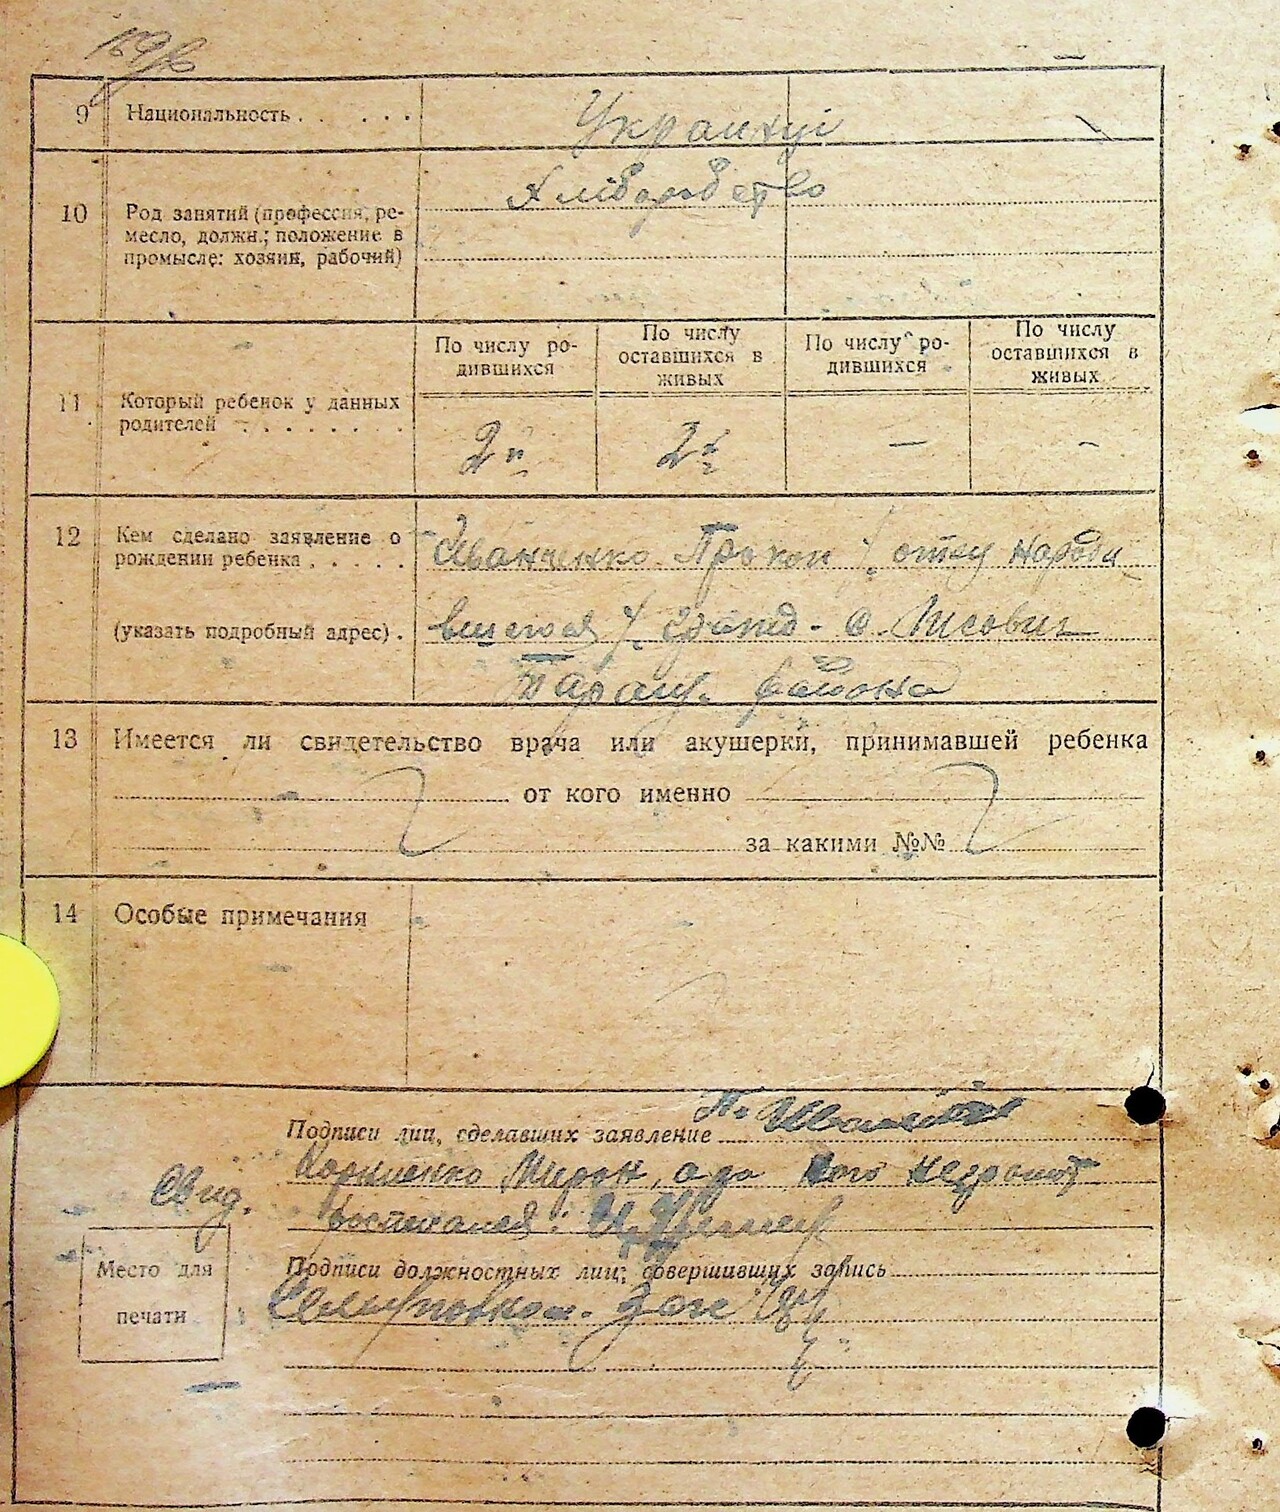 169/б
9 Национальность . . . . . Українці
10 Род занятий (профессия, ре-
месло, должн.; положение в
промысле: хозяин, рабочий)
Хліборобство
По числу ро-
дившихся
По числу
оставшихся в
живых
По числу ро-
дившихся
По числу
оставшихся в
живых
11 Который ребенок у данных
родителей . . . . . . .
2й 2й — -
12 Кем сделано заявление о
рождении ребенка . . . . .
(указать подробный адрес) .
Иванченко Прокоп /: отец народи
вшегося /: с.
района
13 Имеется ли свидетельство врача или акушерки, принимавшей ребенка
от кого именно
за какими №№
14 Особые примечания
Подписи лиц, сделавших заявление П.
Свид. Корниенко Мирон, а за його неграмот
Место для
печати
Подписи должностных лиц, совершивших запись